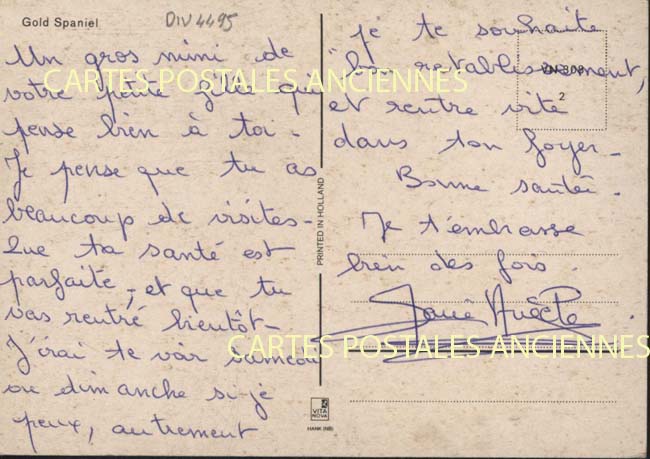 Gold Spaniel
DIV 4495
Un gros mimi de
votre petite qui
pense bien à toi.
Je pense que tu as
beaucoup de visites.
Que ta santé est
parfaite, et que tu
vas rentré bientôt.
J'irai te voir samedi
ou dimanche si je
peux, autrement
je te souhaite
bon retablissement,
et rentre vite
dans ton foyer.
Bonne santé.
Je t'embrasse
bien des fois.
PRINTED IN HOLLAND
2
VITA NOVA
HANK (NB)
CARTES POSTALES ANCIENNES
CARTES POSTALES ANCIENNES